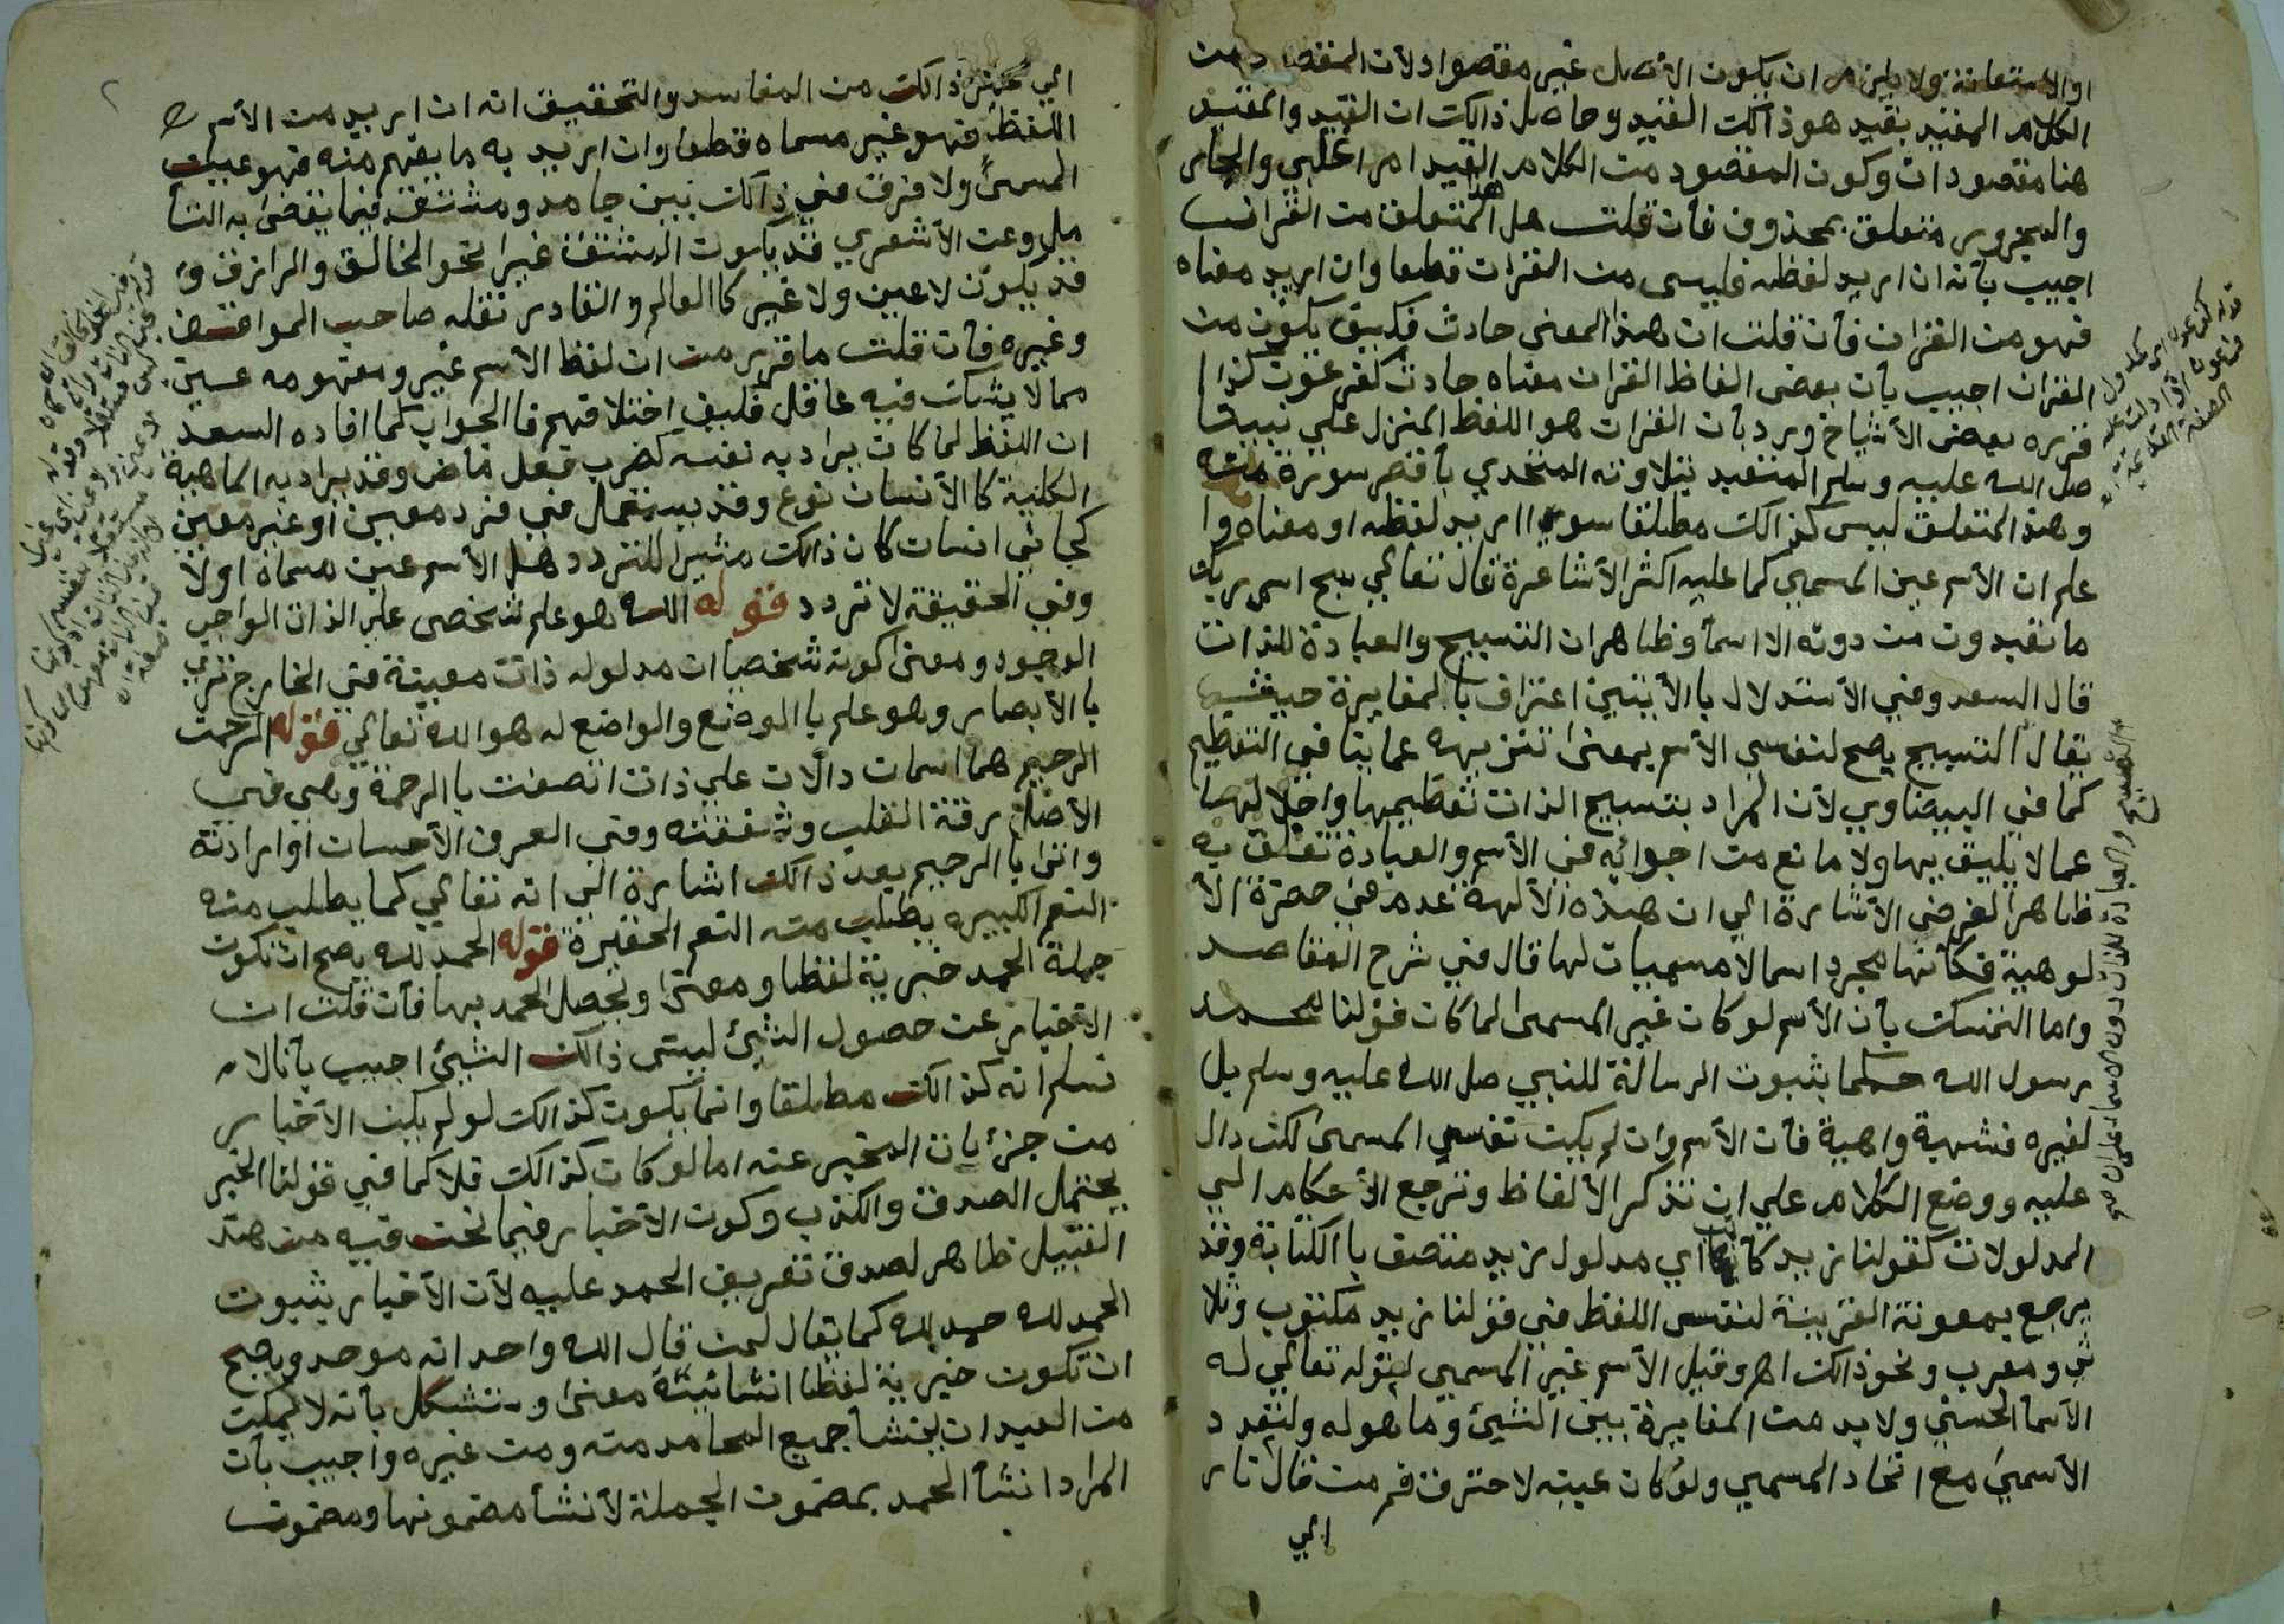 او الاستعانة ولا يلزم ان يكون الأصل غير مقصوا دلأن المقصاد من
الكلام المقيد بقيد هو ذالك القيد وحاصل ذالك ان القيد والمقيد
هنا مقصودان وكون المقصود من الكلام القيد امر اغلبي والجار
والمجرور متعلق بمحذوف فأن قلت هل هذا المتعلق من القرأن
اجيب بأنه ان اريد لفظه فليس من القران قطعا وان اريد معناه
فهو من القران فأن قلت ان هذا المعنى حادث فكيف يكون من
القران اجيب بأن بعض الفاظ القران معناه حادث كفرعون كذا
قرره بعض الأشياخ ورد بأن القران هو اللفظ المنزل علي نبينا
صل الله عليه وسلم المتعبد بتلاوته المتحدي بأقصر سورة منه
وهذ المتعلق ليس كذالك مطلقا سوا اريد لفظه او معناه وا
علم ان الأسم عين المسمي كما عليه اكثر الأشاعرة قال تعالي سبح اسم ربك
ما تعبدون من دونه الا اسمأ وظاهر ان التسبيح والعبادة للذات
قال السعد وفي الأستدلال بالأيتين اعتراف بالمغايرة حيث
يقال التسبيح يصح لنفس الأسم بمعنى تنزيهه عما ينافي التعظيم
كما في البيضاوي لأن المراد بتسبيح الذات تعظيمها واجلالها
عما لا يليق بها ولا مانع من اجرائه في الأسم والعبادة تعلق به
ظاهرا لغرض الأشارة الي ان هذه الألهة عدم في حضرة الأ
لوهية فكأنها مجرد اسما لا مسميات لها قال في شرح المقاصد
واما التمسك بأن الأسم لو كان غير المسمى لما كان قولنا محمد
رسول الله حكما بثبوت الرسالة للنبي صل الله عليه وسلم بل
لغيره فشبهة واهية فأن الأسم وان لم يكن نفس المسمى لكنه دال
عليه ووضع الكلام علي ان تذكر الألفاظ وترجع الأحكام الي
المدلولات كقولنا زيد كاتب اي مدلول زيد متصف با الكتابة وقد
يرجع بمعونة القرينة لنفس اللفظ في قولنا زيد مكتوب وثلا
ثي ومعرب ونحو ذالك اهـ وقيل الأسم غير المسمي لقوله تعالي له
الأسمأ الحسني ولا بد من المغايرة بين الشيئ وما هو له ولتعدد
الأسمي مع اتحاد المسمي ولو كان عينه لاحترق فم من قال نار
الي
قوله كفرعون اي مدلول
فرعون اذ دلت عليه
الصفة القديمة اهـ
الي غير ذالك من المفاسد والتحقيق انه ان اريد من الأسم
اللفظ فهو غير مسماه قطعا وان اريد به ما يفهم منه فهو عين
المسمى ولا فرق في ذالك بين جامد ومشتق فيما يقضى به التأ
مل وعن الأشعري قد يكون المشتق غيرا نحو الخالق والرازق و
قد يكون لا عين ولا غير كا العالم والقادر نقله صاحب المواقف
وغيره فأن قلت ما قرر من ان لفظ الأسم غير ومفهومه عين
مما لا يشك فيه عاقل فكيف اختلافهم فا الجواب كما افاده السعد
ان اللفظ لما كان يراد به نفسه كضرب فعل ماض وقد يراد به الماهية
الكلية كا الأنسان نوع وقد يستعمل في فرد معين او غير معين
كجاني انسان كان ذالك مثيرا للتردد هل الأسم عين مسماه اولا
وفي الحقيقة لا تردد قوله الله هو علم شخصي علي الذات الواجب
الوجود ومعنى كونه شخصيا ان مدلوله ذات معينة في الخارج ترى
با الأبصار وهو علم با الوضع والواضع له هو الله تعالي قوله الرحمن
الرحيم هما اسمان دالان علي ذات اتصفت با الرحمة وهي في
الأصل رقة القلب وشفقته وفي العرف الأحسان او ارادته
واتى با الرحيم بعد ذالك اشارة الي انه تعالي كما يطلب منه
النعم الكبيره يطلب منه النعم الحقيرة قوله الحمد لله يصح ان تكون
جملة الحمد خبرية لفظا ومعنى ويحصل الحمد بها فأن قلت ان
الأخبار عن حصول الشيئ ليس ذالك الشيئ اجيب بأنا لا
نسلم انه كذالك مطلقا وانما يكون كذالك لو لم يكن الأخبار
من جزئيات المخبر عنه اما لو كان كذالك فلا كما في قولنا الخبر
يحتمل الصدق والكذب وكون الأخبار فيما نحن فيه من هذ
القبيل ظاهر لصدق تعريف الحمد عليه لأن الأخبار بثبوت
الحمد لله حمد لله كما يقال لمن قال الله واحد انه موحد ويصح
ان تكون خبرية لفظا انشائية معنى وستشكل بأنه لا يمكن
من العبد ان ينشأ جميع المحامد منه ومن غيره واجيب بأن
المراد انشأ الحمد بمضمون الجملة لأنشأ مضمونها ومضمون